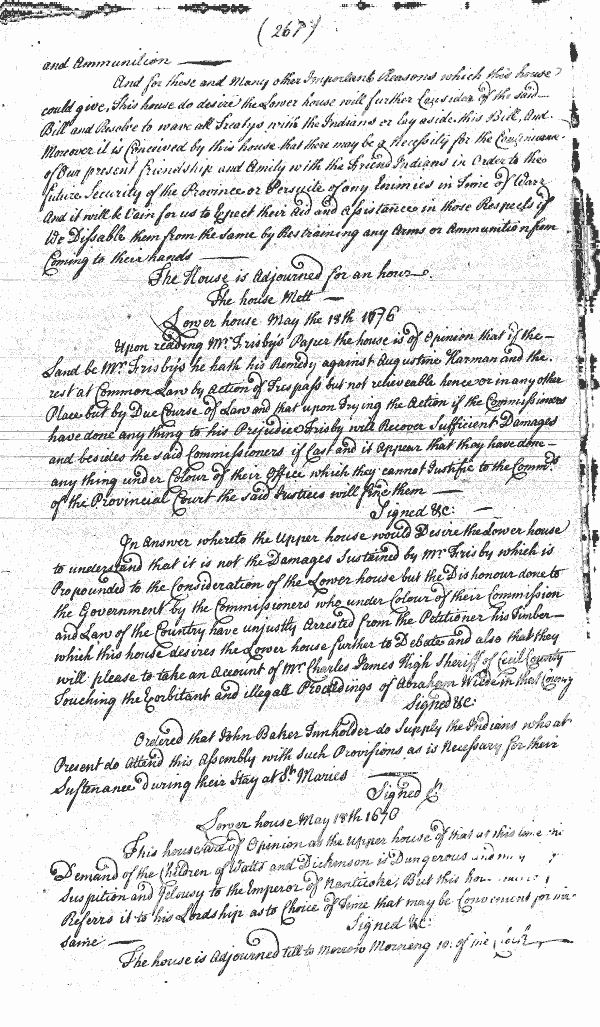 (267)
and Ammunition
And for these and Many other Important Reasons which this house
could give, This house do desire the Lower house will further Consider of the said
Bill and Resolve to wave all Treatys with the Indians or lay aside this Bill, And
Moreover it is Conceived by this house that there may be a necessity for the Continuance
of Our present friendship and Amity with the Friend Indians in Order to the
future Security of the Province or Persuite of any Enimies in Time of Warr
And it will be Vain for us to Expect their Aid and Assistance in those Respects if
We Dissable them from the Same by Restraining any Arms or Ammunition from
Coming to their hands
The House is Adjourned for an hour.
The house Mett
Lower house May the 18th 1676
Upon reading Mr. Frisbys Paper the house is of Opinion that if the
Land be Mr. Frisbys he hath his Remedy against Augustine Harman and the
rest at Common Law by Action of Trespass but not relieveable hence or in any other
Place but by Due Course of Law and that upon Trying the Action if the Commissioners
have done any thing to his Prejudice Frisby will Recover Sufficient Damages
and besides the said Commissioners if Cast and it Appear that they have done
any thing under Colour of their Office which they cannot Justifie to the Commrs.
of the Provincial Court the said Justices will fine them
Signed &c:
In Answer whereto the Upper house would Desire the Lower house
to understand that it is not the Damages Sustained by Mr. Frisby which is
Propounded to the Consideration of the Lower house but the Dishonour done to
the Government by the Commissioners who under Colour of their Commission
and Law of the Country have unjustly Arrested from the Petitioner his Timber
which this house desires the Lower house further to Debate and also that they
will please to take an Account of Mr. Charles James High Sheriff of Cecil County
Touching the Exorbitant and illegall Proceedings of Abraham in that County
Signed &c:
Ordered that John Baker Innholder do Supply the Indians who at
Present do Attend this Assembly with Such Provisions as is Necessary for their
Sustenance during their Stay at St. Maries
Signed
Lower house May 18th 1676
This house are of Opinion as the Upper house of that at this time
Demand of the Children of Watts and Dickenson is Dangerous and may
Suspition and Jelousy to the Emperor of Nanticoke, But this house
Referrs it to his Lordship as to Choice of Time that may be Convenient for the
Same
Signed &c:
The house is Adjourned till to Morrow Morneng 10: of the Clock